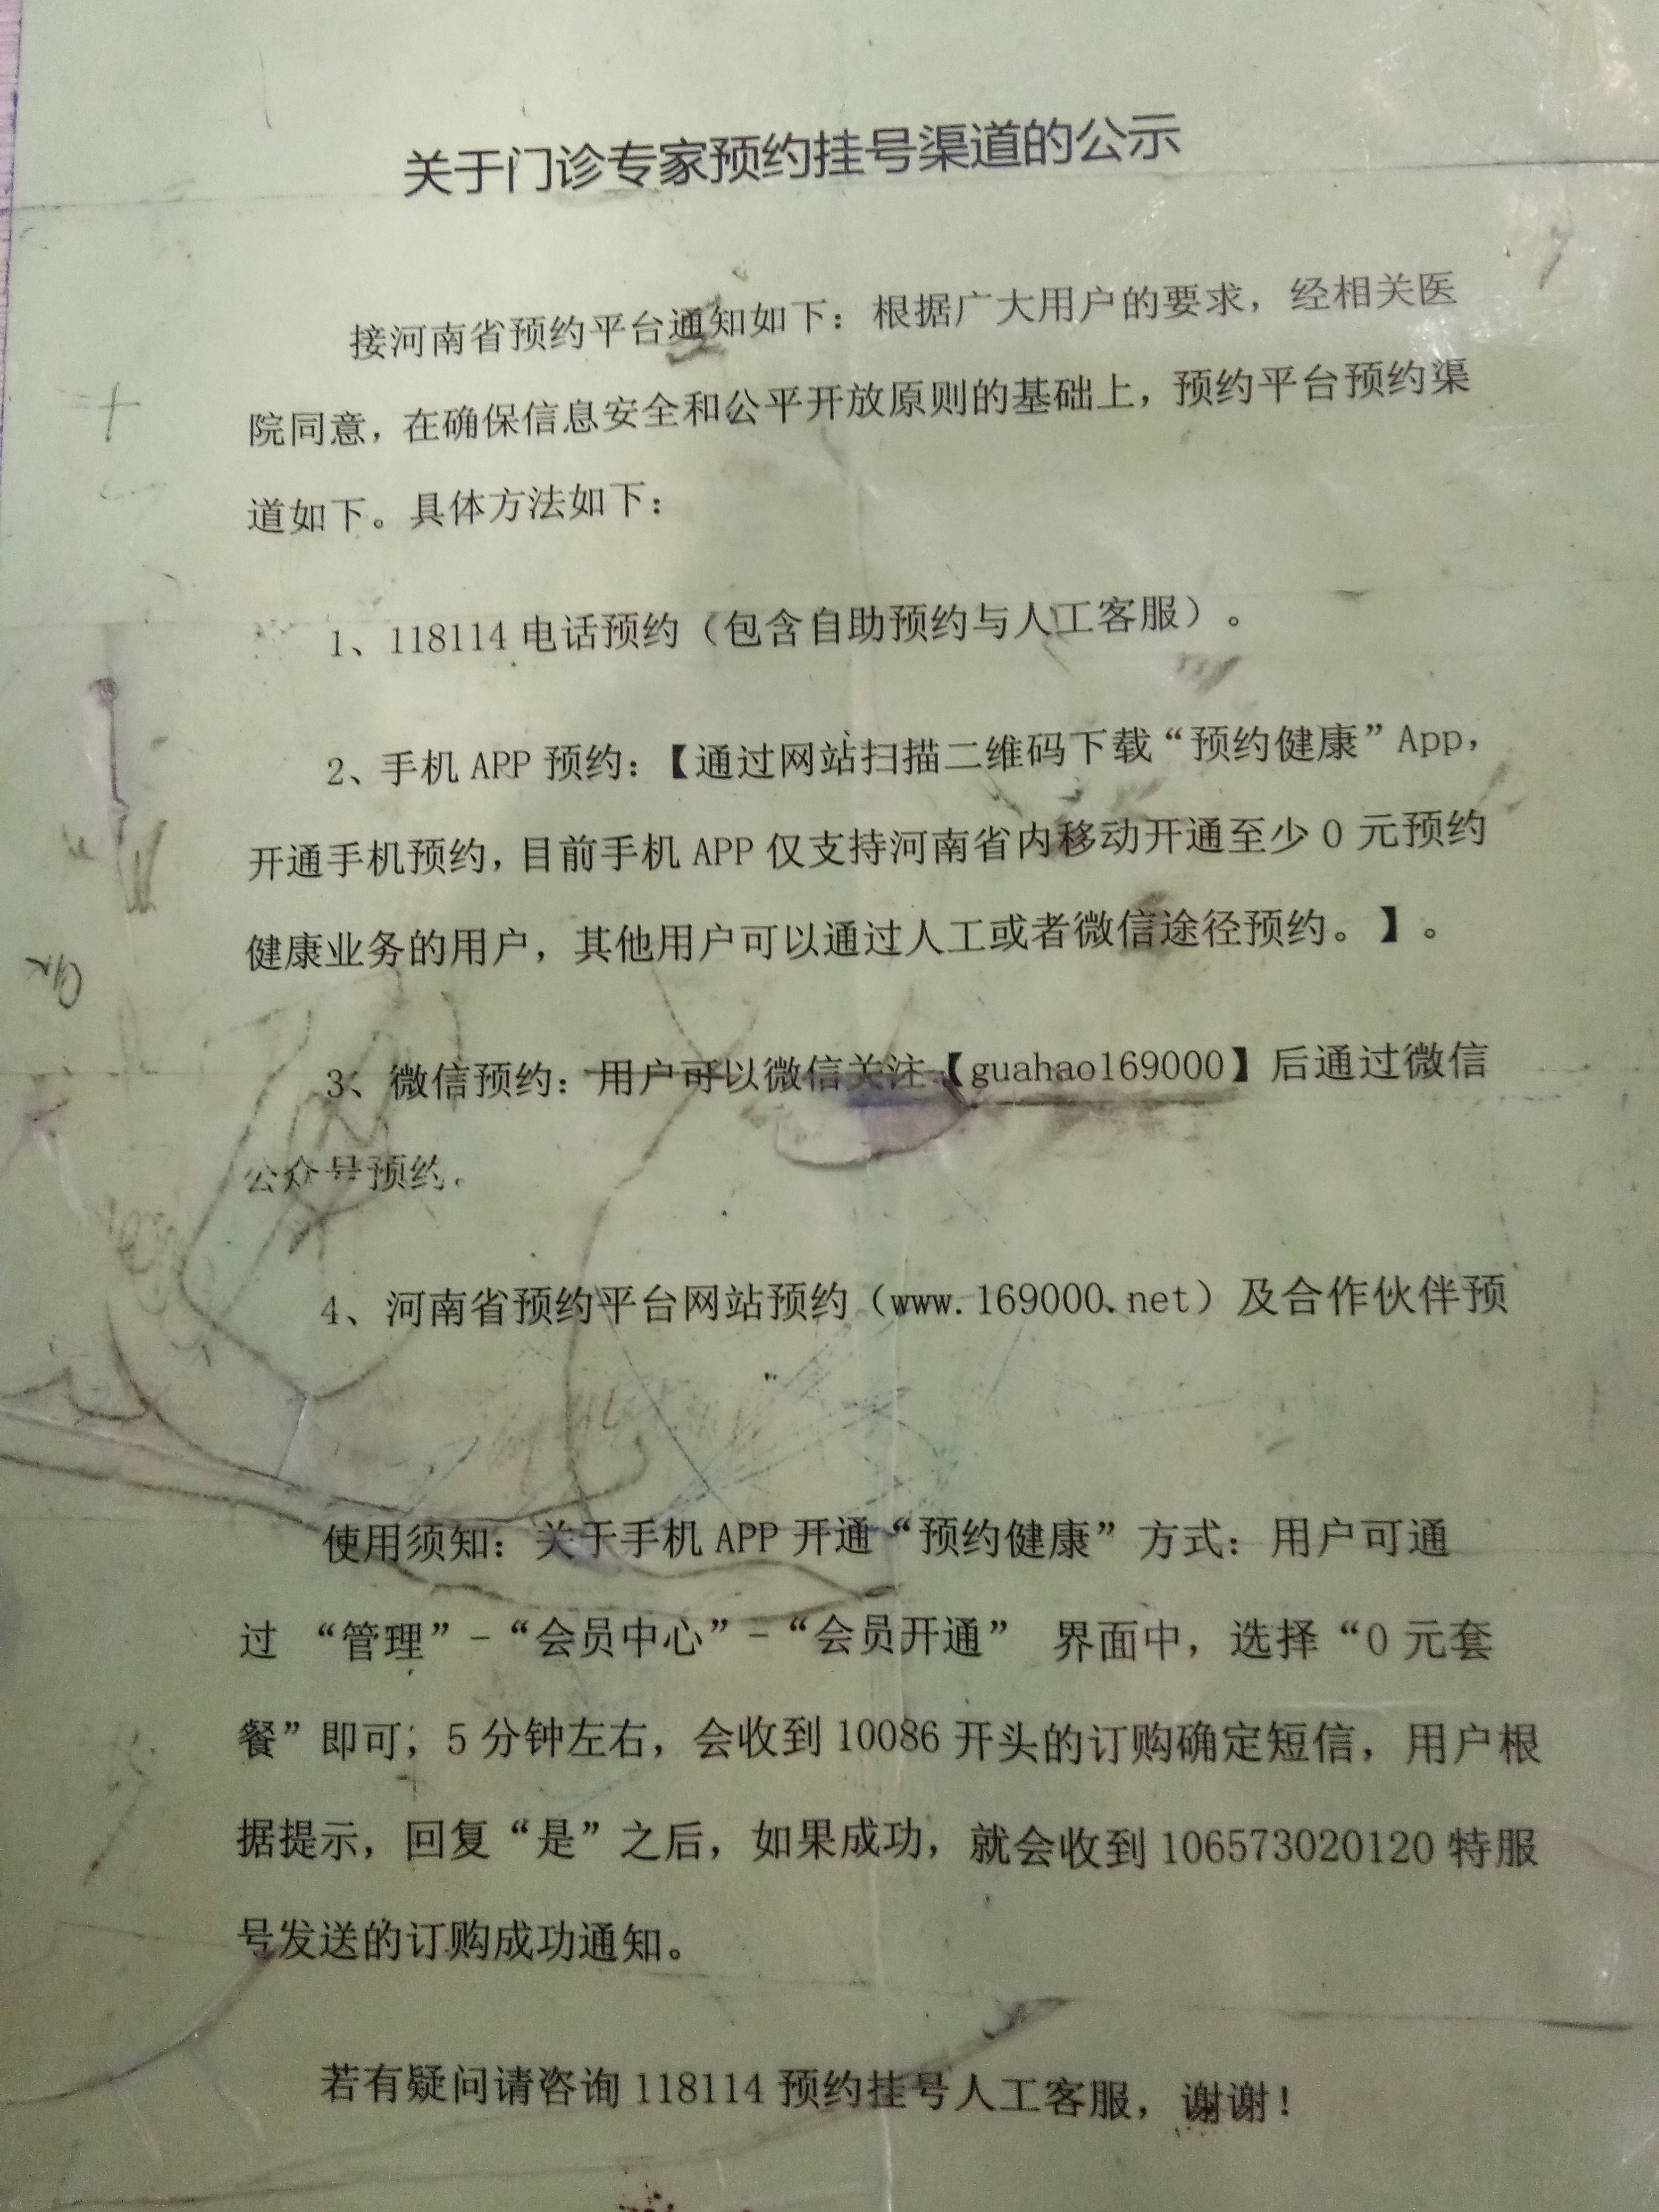 关于门诊专家预约挂号渠道的公示
接河南省预约平台通知如下：根据广大用户的要求，经相关医
院同意，在确保信息安全和公平开放原则的基础上，预约平台预约渠
道如下。具体方法如下：
1、118114 电话预约（包含自助预约与人工客服）。
2、手机 APP 预约：【通过网站扫描二维码下载“预约健康”App，
开通手机预约，目前手机 APP 仅支持河南省内移动开通至少 0 元预约
健康业务的用户，其他用户可以通过人工或者微信途径预约。】。
3、微信预约：用户可以微信关注【guahao169000】后通过微信
公众号预约。
4、河南省预约平台网站预约（www.169000.net）及合作伙伴预
使用须知：关于手机 APP 开通“预约健康”方式：用户可通
过 “管理”-“会员中心”-“会员开通” 界面中，选择“0 元套
餐”即可；5 分钟左右，会收到 10086 开头的订购确定短信，用户根
据提示，回复“是”之后，如果成功，就会收到 106573020120 特服
号发送的订购成功通知。
若有疑问请咨询 118114 预约挂号人工客服，谢谢！